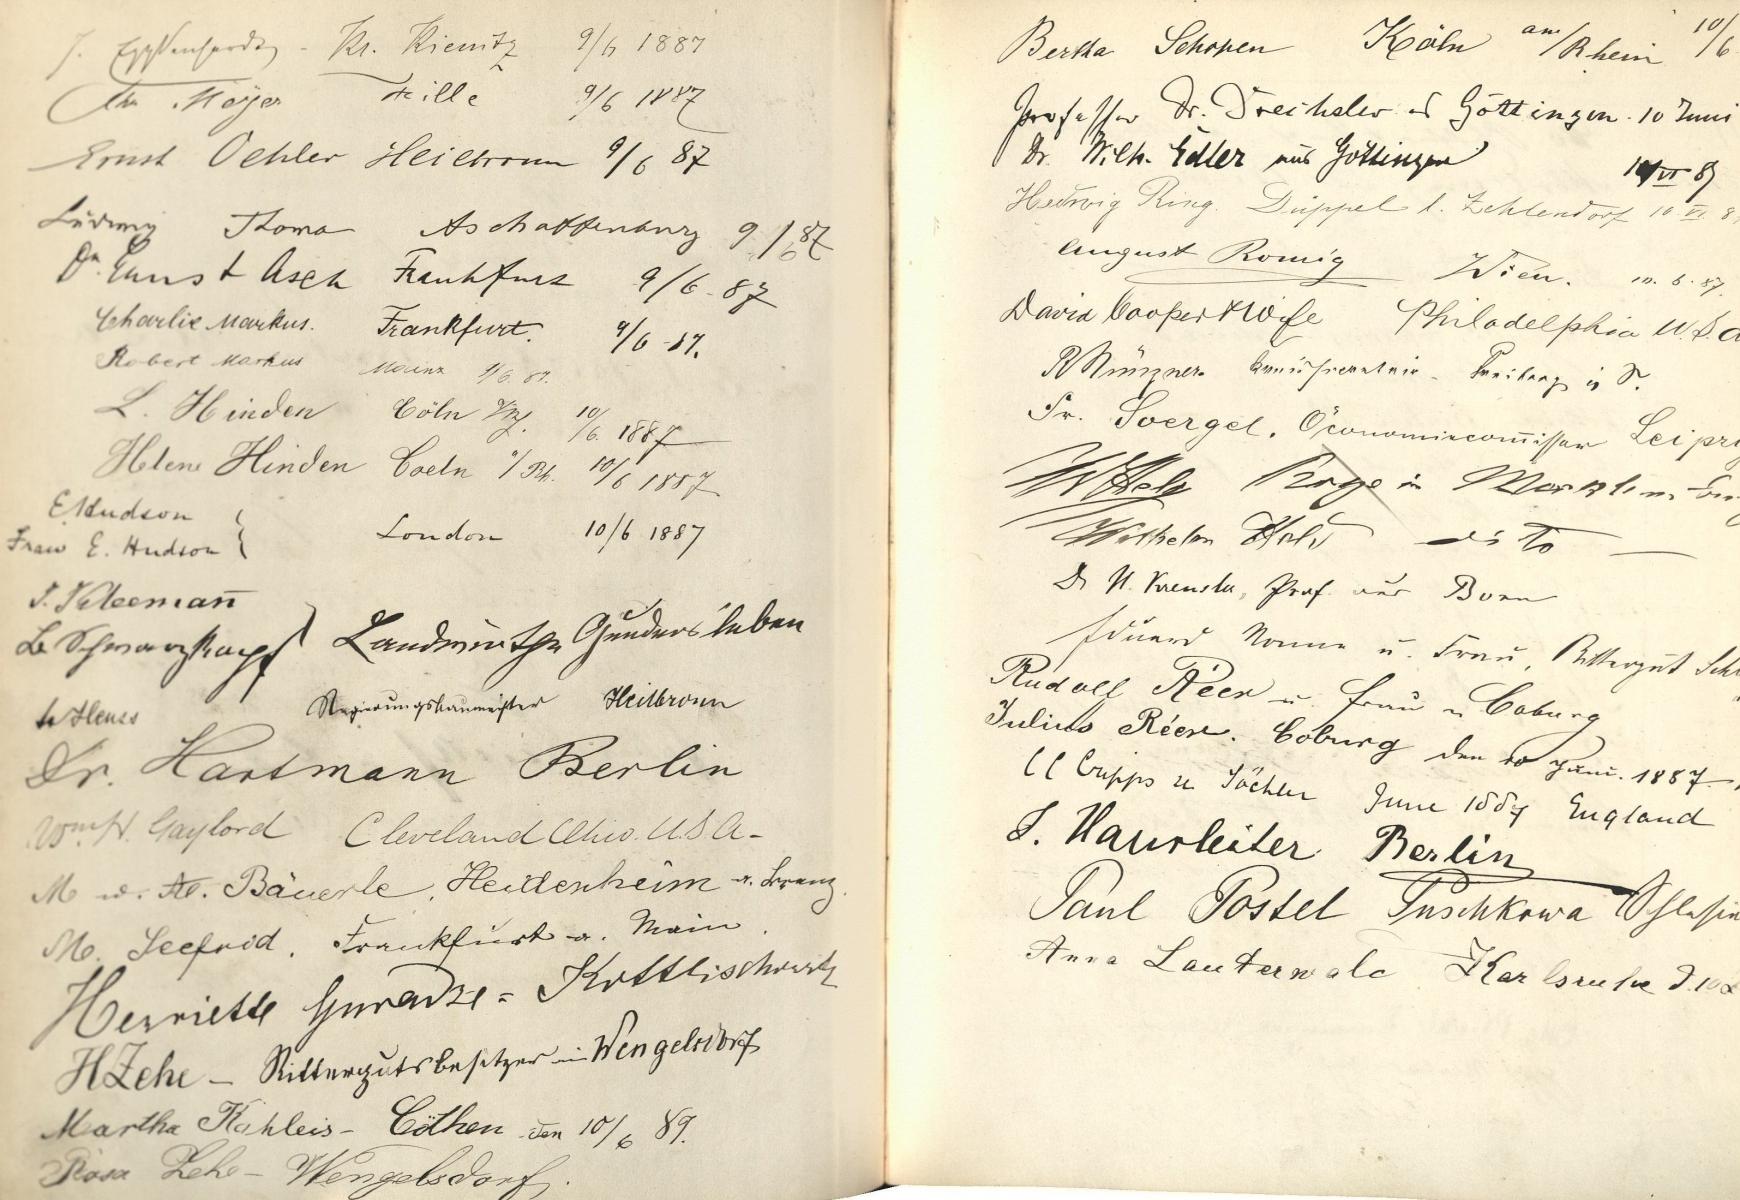 9/6 1887
Meyer 9/6 1887
Ernst Oehler Heilbronn 9/6 87
Ludwig Thoma Aschaffenburg 9/6 87
Dr. Ernst Asch Frankfurt 9/6 - 87
Charlie Markus. Frankfurt. 9/6 - 87.
Robert Markus Mainz 9/6. 87.
L. Hinden Cöln 10/6. 1887
Helene Hinden Coeln a/Rh. 10/6 1887
E. Hudson
Frau E. Hudson } London 10/6 1887
J. Kleemann̄
Schwarzkopf } Landwirthe Gundersleben
Heuss Regierungsbaumeister Heilbronn
Dr. Hartmann Berlin
Wm. H. Gaylord Cleveland Ohio. U.S.A-
M u. Bäuerle, Heidenheim a. Brenz.
M. Seefrid, Frankfurt a. Main.
Henriette Guradze = Kottlischowitz
H Zehe - Rittergutsbesitzer in Wengelsdorf
Martha Kahleis - Cöthen den 10/6 89.
Rosa Zehe - Wengelsdorf.
Bertha Schopen Köln am/Rhein 10/6
Professor Dr. Drechsler aus Göttingen. 10 Juni
Dr. Wilh. Edler aus Göttingen 10/VI 87
Hedwig Ring. Düppel b. Zehlendorf 10. VI. 8
August Romig Wien. 10. 6. 87.
David Cooper & Wife Philadelphia U.S.A
Münzner Freiberg i. S.
Fr. Soergel, Öconomiecom̄issar Leipzig
in
Wilhelm dito
Dr Prof. aus Bonn
Eduard Nonne u. Frau, Rittergut
Rudolf Réer u. Frau Coburg
Julius Réer. Coburg den 10 Juni. 1887
Cripps u Töchter June 1887 England
J. Haussleiter Berlin
Paul Postel Puschkowa Schlesien
Anna Lauterwald Karlsruhe d. 10